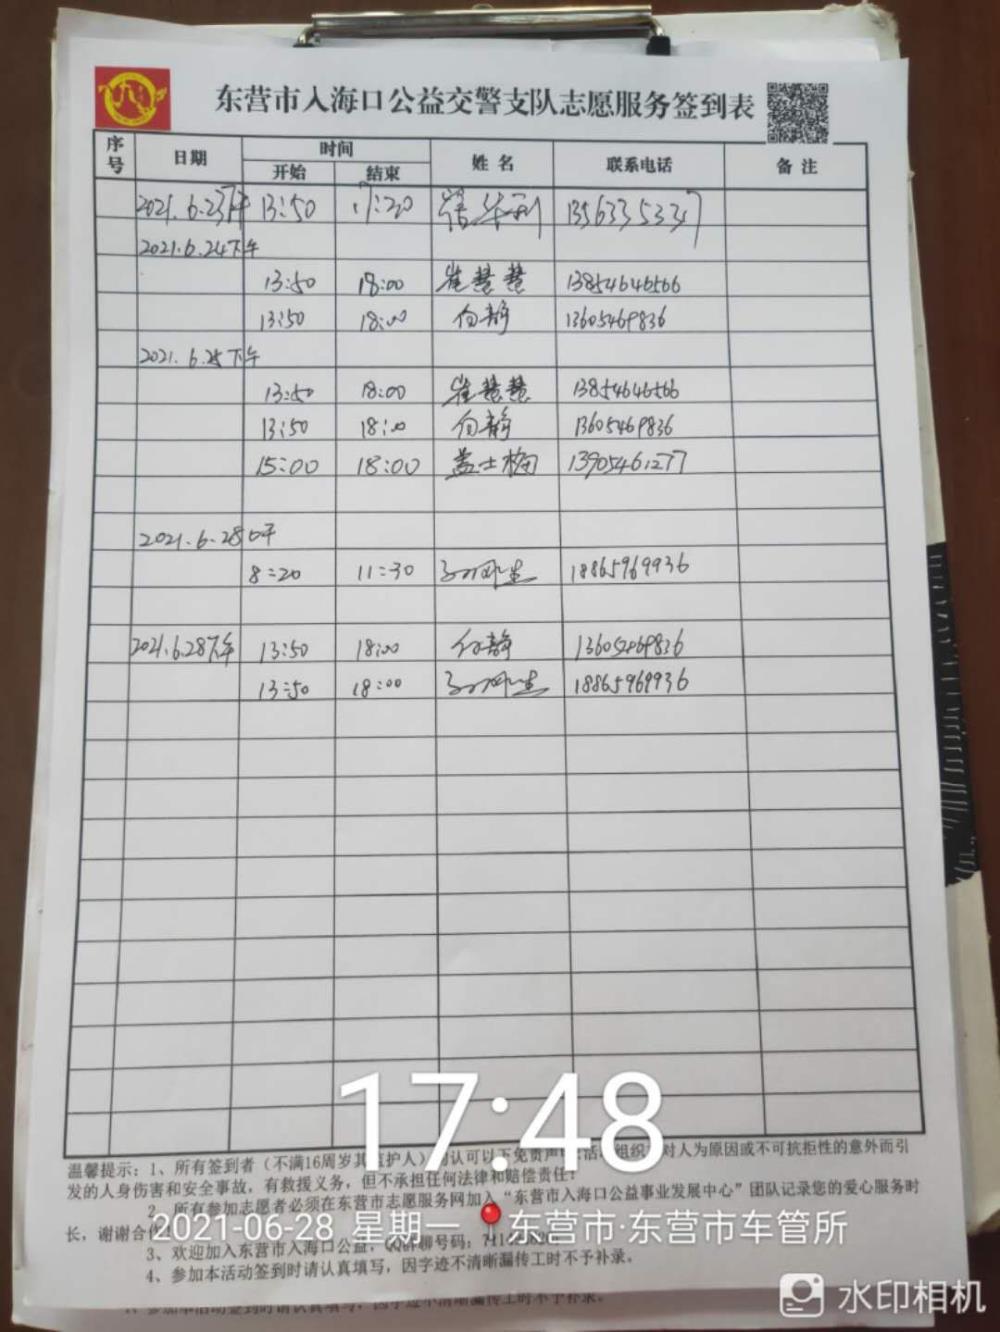 东营市入海口公益交警支队志愿服务签到表
序号 日期 时间 姓名 联系电话 备注
开始 结束
2021.6.23下午 13:50 17:20 1356335337
2021.6.24下午
13:50 18:00 崔慧慧 13854646566
13:50 18:00 向静 13605469836
2021.6.25下午
13:50 18:00 崔慧慧 13854646566
13:50 18:00 向静 13605469836
15:00 18:00 盖士梅 13905461277
2021.6.28
8:20 11:30 18865969936
2021.6.28下午 13:50 18:00 向静 13605469836
13:50 18:00 18865969936
17:48
温馨提示：1、所有签到者（不满16周岁其监护人）均认可以下免责声明：活动组织 对人为原因或不可抗拒性的意外而引
发的人身伤害和安全事故，有救援义务，但不承担任何法律和赔偿责任！
2、所有参加志愿者必须在东营市志愿服务网加入“东营市入海口公益事业发展中心”团队记录您的爱心服务时
长，谢谢合作
2021-06-28 星期一 东营市·东营市车管所
3、欢迎加入东营市入海口公益，QQ群聊号码：
4、参加本活动签到时请认真填写，因字迹不清晰漏传工时不予补录。
4、参加本活动签到时请认真填写，因字迹不清晰漏传工时不予补录。
水印相机